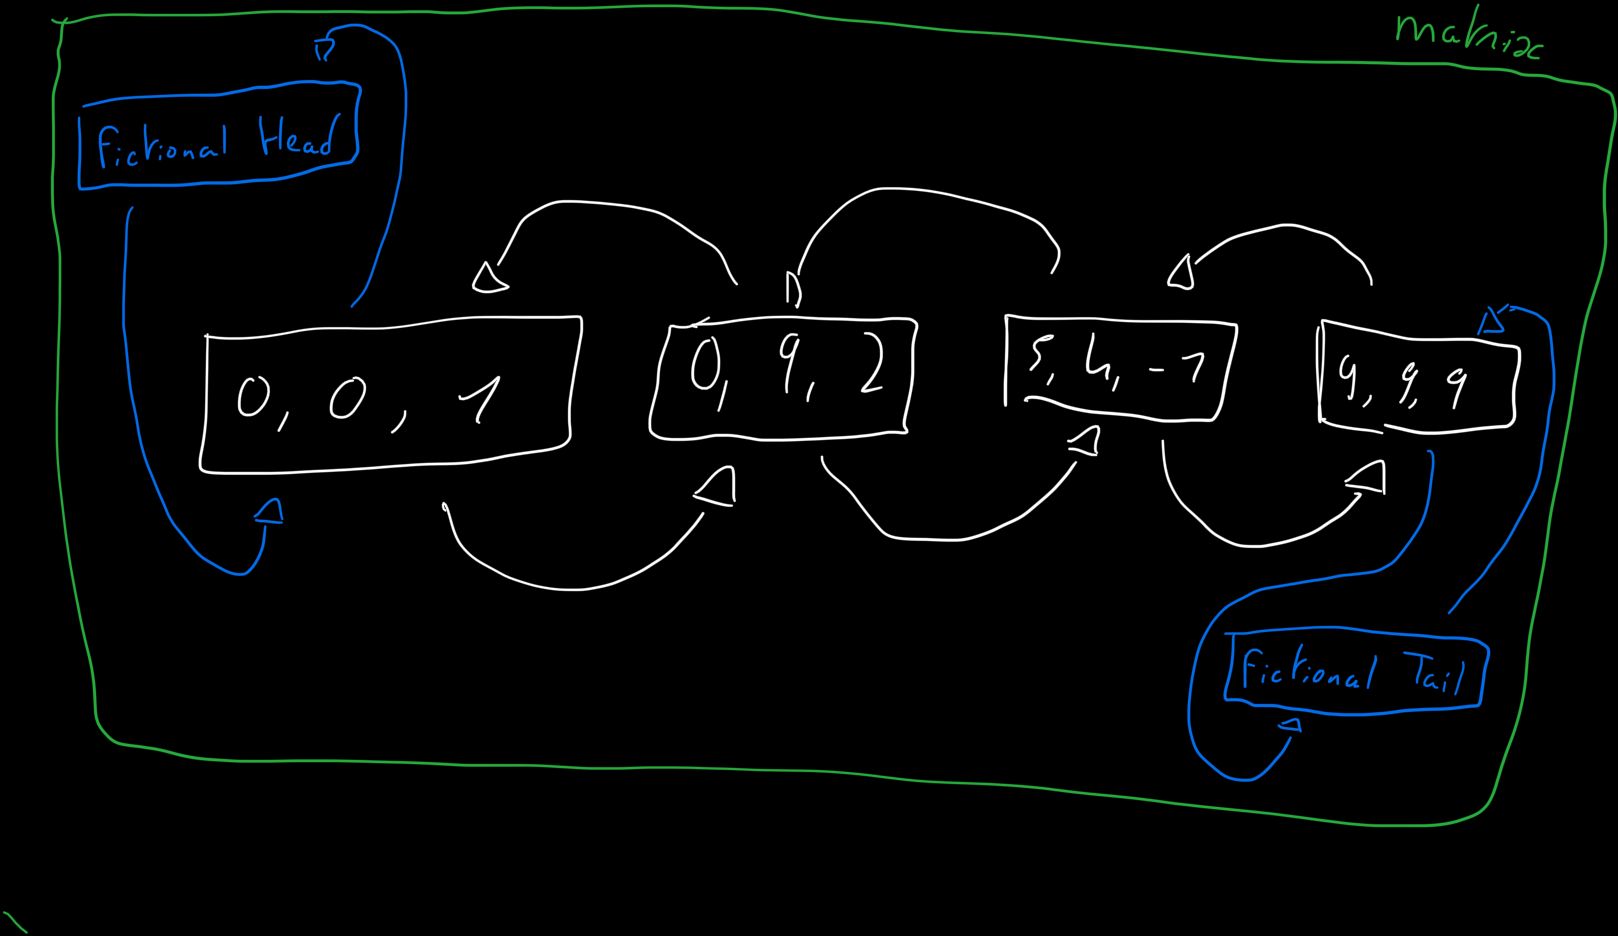 matrix
Fictional Head
0, 0, 1
0, 9, 2
5, 4, -1
9, 9, 9
Fictional Tail